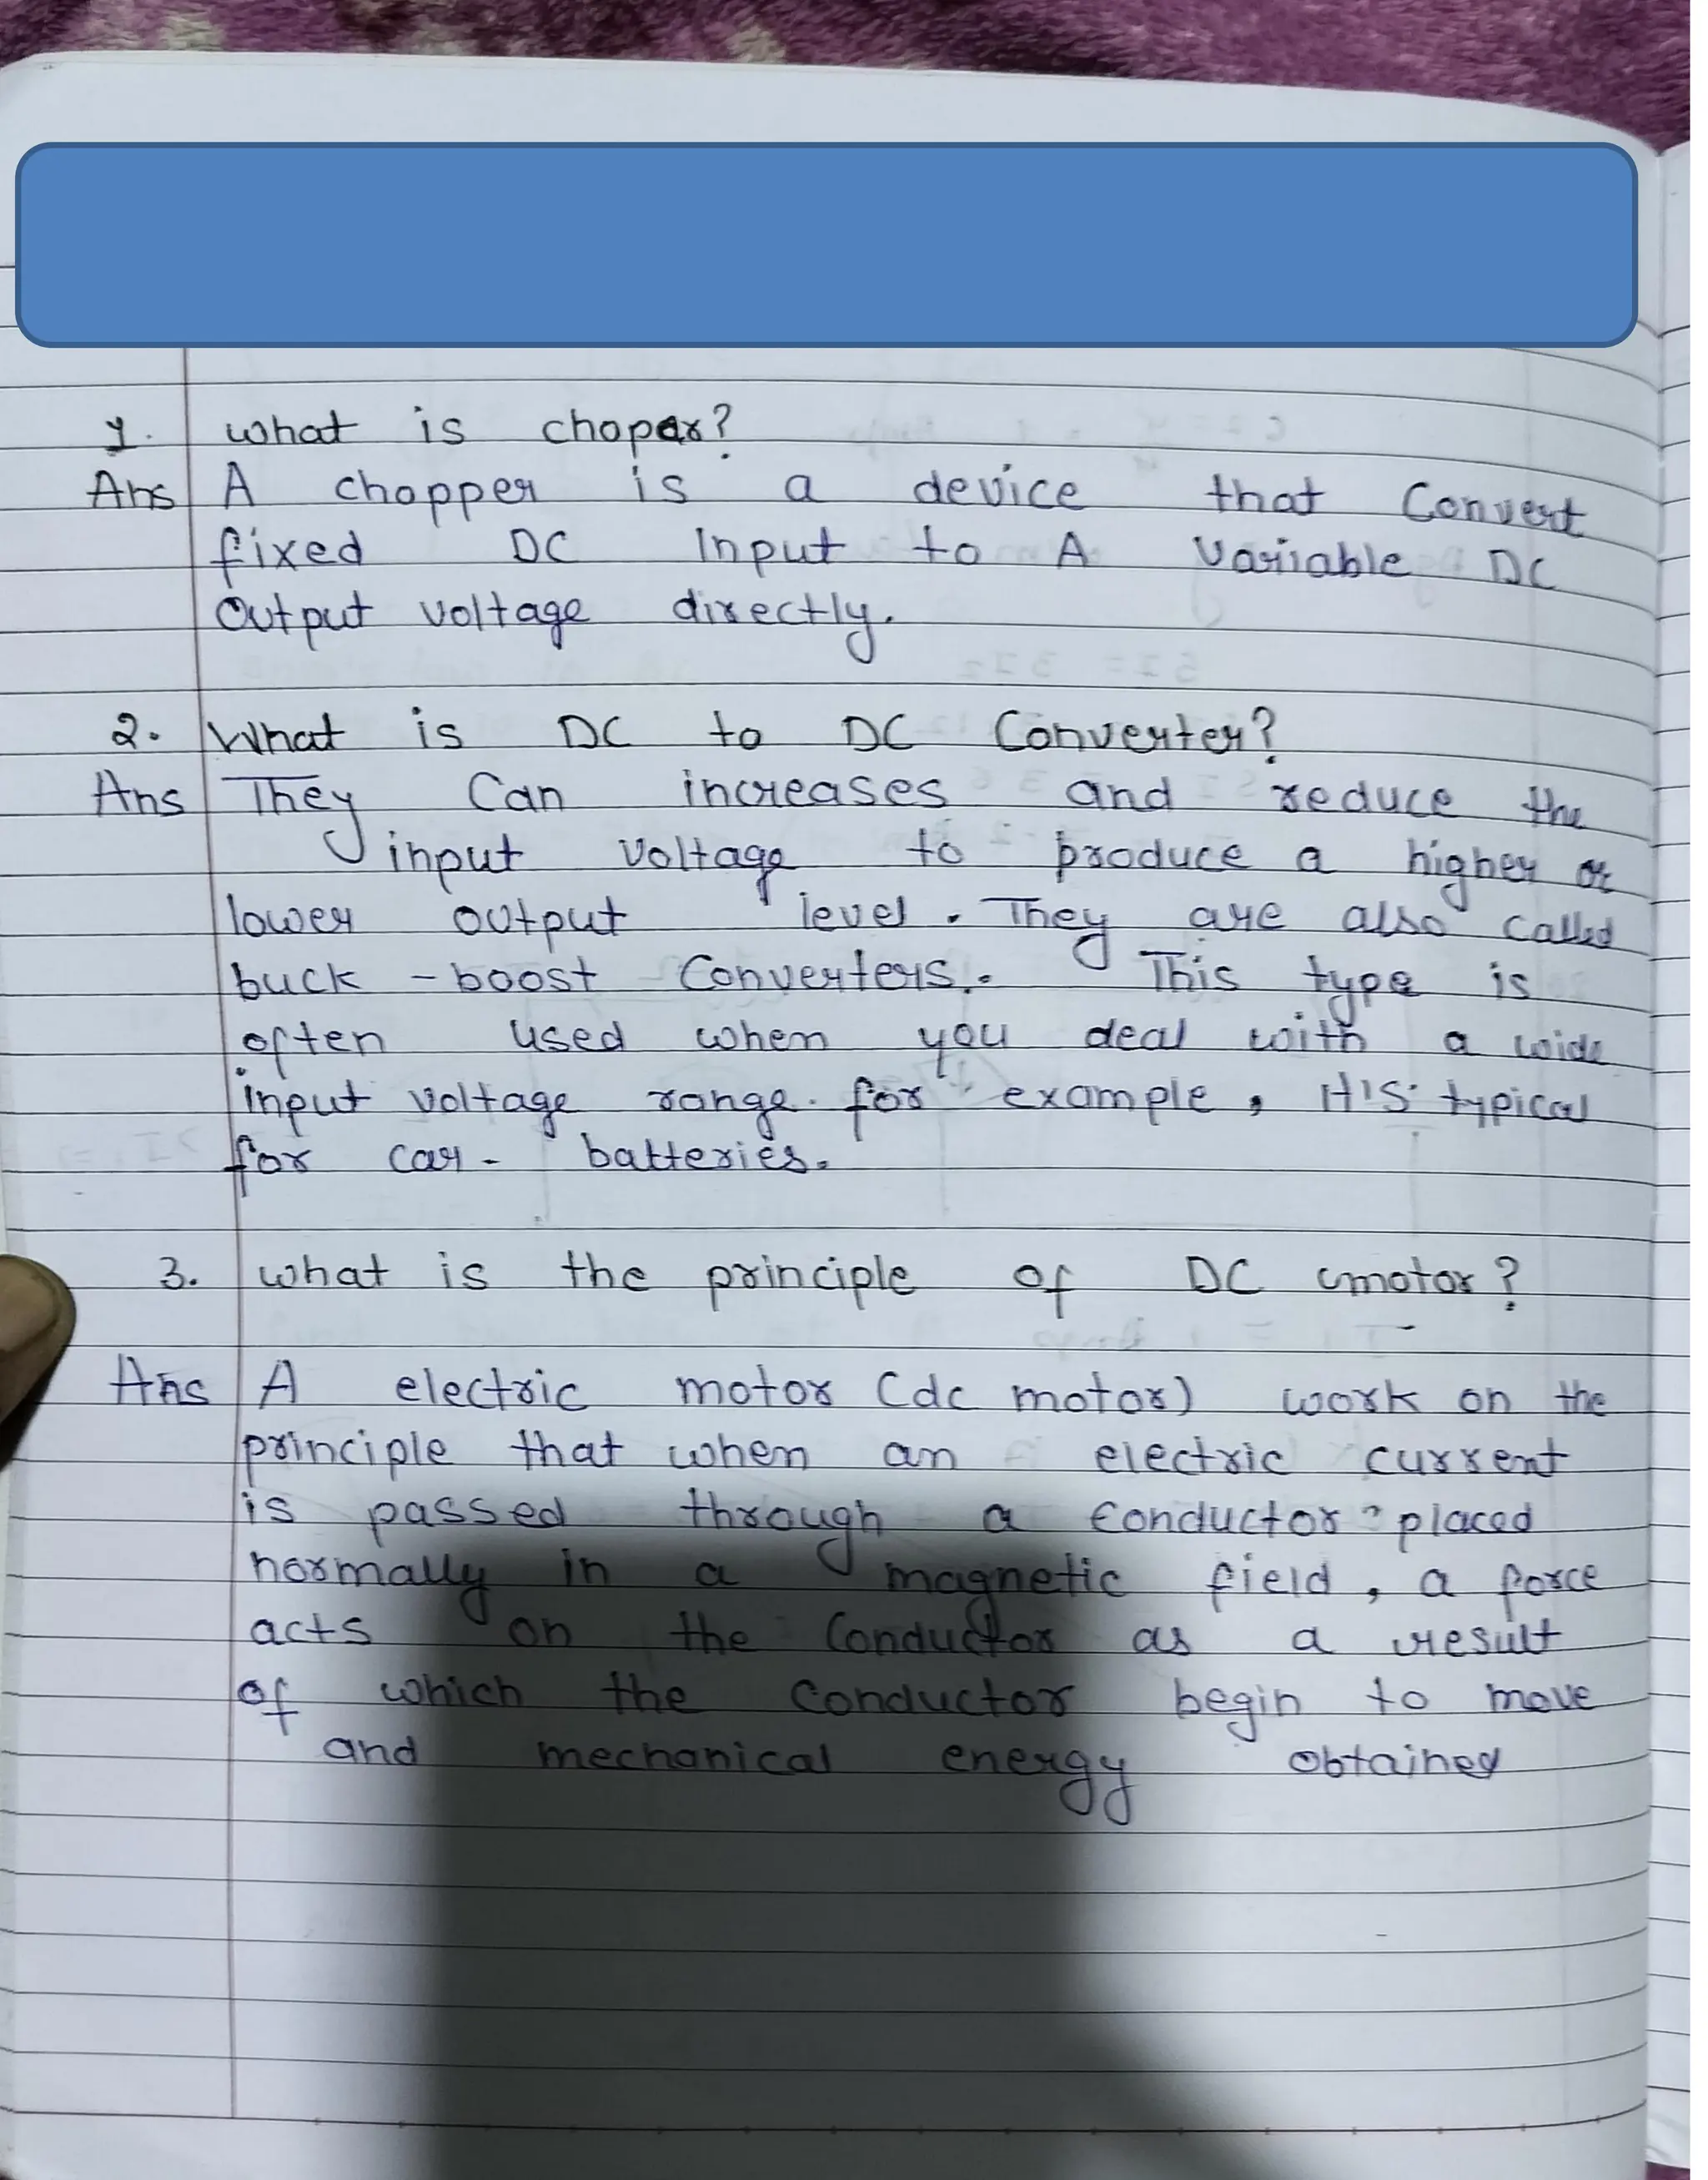 1. what is choper?
Ans A chopper is a device that Convert
fixed DC Input to A Variable DC
Output voltage directly.
2. What is DC to DC Converter?
Ans They Can increases and reduce the
input Voltage to produce a higher or
lower output level. They are also called
buck - boost Converters. This type is
often used when you deal with a wide
input voltage range. for example, It's typical
for car - batteries.
3. what is the principle of DC motor?
Ans A electric motor (dc motor) work on the
principle that when an electric current
is passed through a Conductor placed
normally in a magnetic field, a force
acts on the Conductor as a result
of which the Conductor begin to move
and mechanical energy obtained